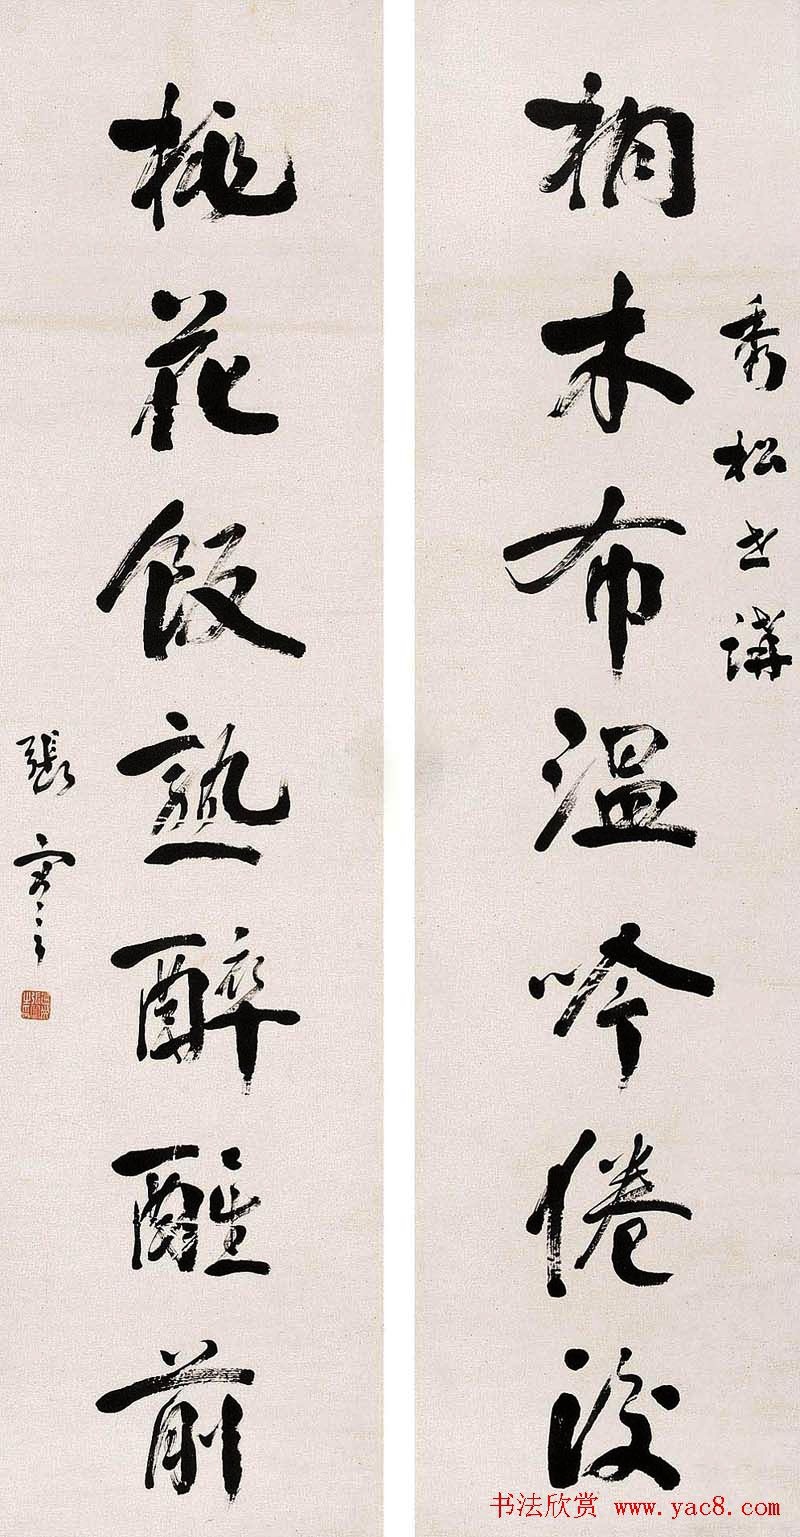 秀松世講
桐木布温吟倦後
桃花飯熟醉醒前
張謇
书法欣赏 www.yac8.com